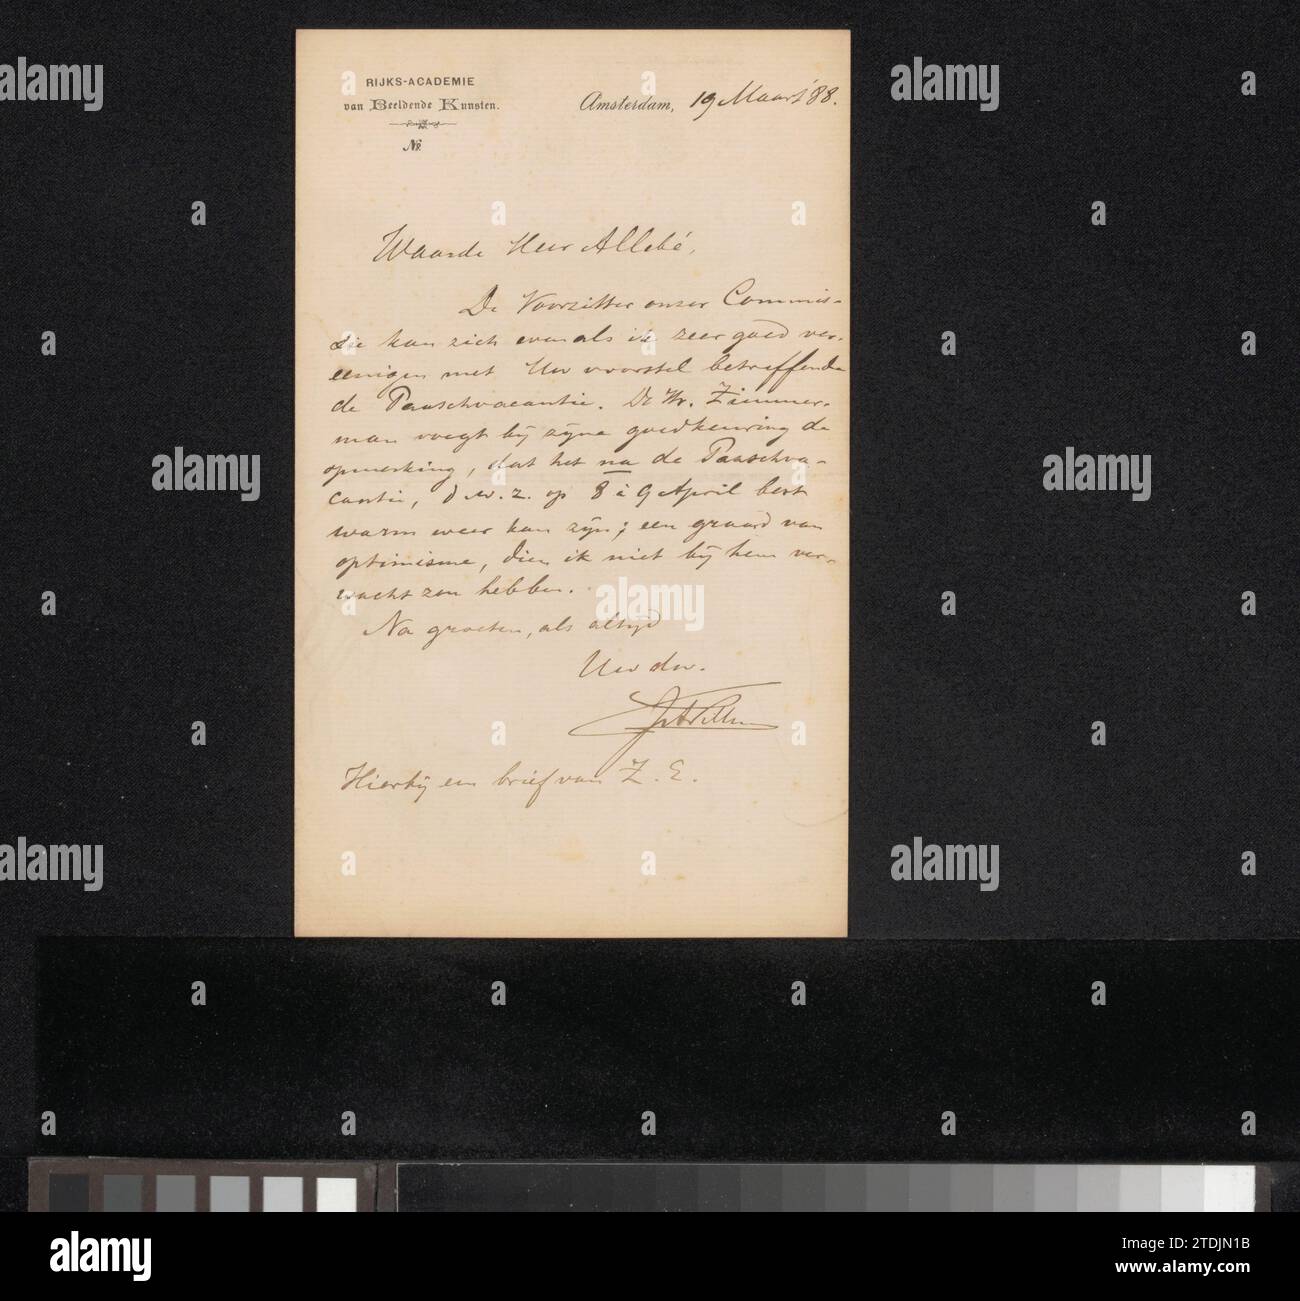 RIJKS-ACADEMIE
van Beeldende Kunsten.
Amsterdam, 19 Maart '88.
No.
Waarde Heer Allebé,
De Voorzitter onzer Commis-
sie kan zich evenals ik zeer goed ver-
eenigen met Uw voorstel betreffende
de Paaschvacantie. De Hr. Zimmer-
man voegt bij zijne goedkeuring de
opmerking, dat het na de Paaschva-
cantie, d.w.z. op 8 à 9 April best
warm weer kan zijn; een graad van
optimisme, dien ik niet bij hem ver-
wacht zou hebben.
Na groeten, als altijd
Uw dw.
Hierbij een brief van Z. E.
alamy
Image ID: 2TDJN1B
www.alamy.com